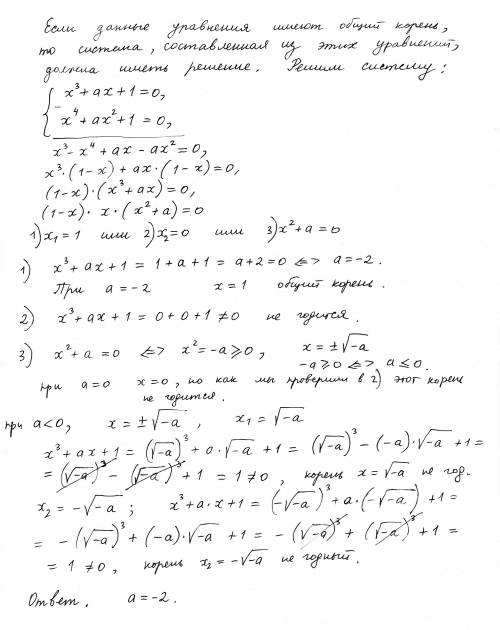 Если данные уравнения имеют общий корень,
то система, составленная из этих уравнений,
должна иметь решение. Решим систему:
{ x³ + ax + 1 = 0,
- x⁴ + ax² + 1 = 0,
x³ - x⁴ + ax - ax² = 0,
x³·(1-x) + ax·(1-x) = 0,
(1-x)·(x³ + ax) = 0,
(1-x)·x·(x² + a) = 0
1) x₁ = 1 или 2) x₂ = 0 или 3) x² + a = 0
1) x³ + ax + 1 = 1 + a + 1 = a + 2 = 0 <=> a = -2.
При a = -2 x = 1 общий корень.
2) x³ + ax + 1 = 0 + 0 + 1 ≠ 0 не годится.
3) x² + a = 0 <=> x² = -a ≥ 0, x = ±√-a
-a ≥ 0 <=> a ≤ 0.
при a = 0 x = 0, но как мы проверили в 2) этот корень
не годится.
при a < 0, x = ±√-a, x₁ = √-a
x³ + ax + 1 = (√-a)³ + a·√-a + 1 = (√-a)³ - (-a)·√-a + 1 =
= (√-a)³ - (√-a)³ + 1 = 1 ≠ 0, корень x = √-a не год.
x₂ = -√-a; x³ + a·x + 1 = (-√-a)³ + a·(-√-a) + 1 =
= -(√-a)³ + (-a)·√-a + 1 = -(√-a)³ + (√-a)³ + 1 =
= 1 ≠ 0, корень x₂ = -√-a не годный.
Ответ. a = -2.